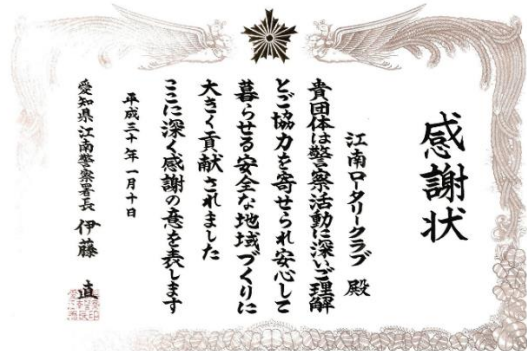 感謝状
江南ロータリークラブ 殿
貴団体は警察活動に深いご理解
とご協力を寄せられ安心して
暮らせる安全な地域づくりに
大きく貢献されました
ここに深く感謝の意を表します
平成三十年一月十日
愛知県江南警察署長 伊藤 直